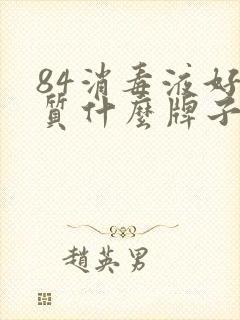 84消毒液好
質什麼牌子
趙英男